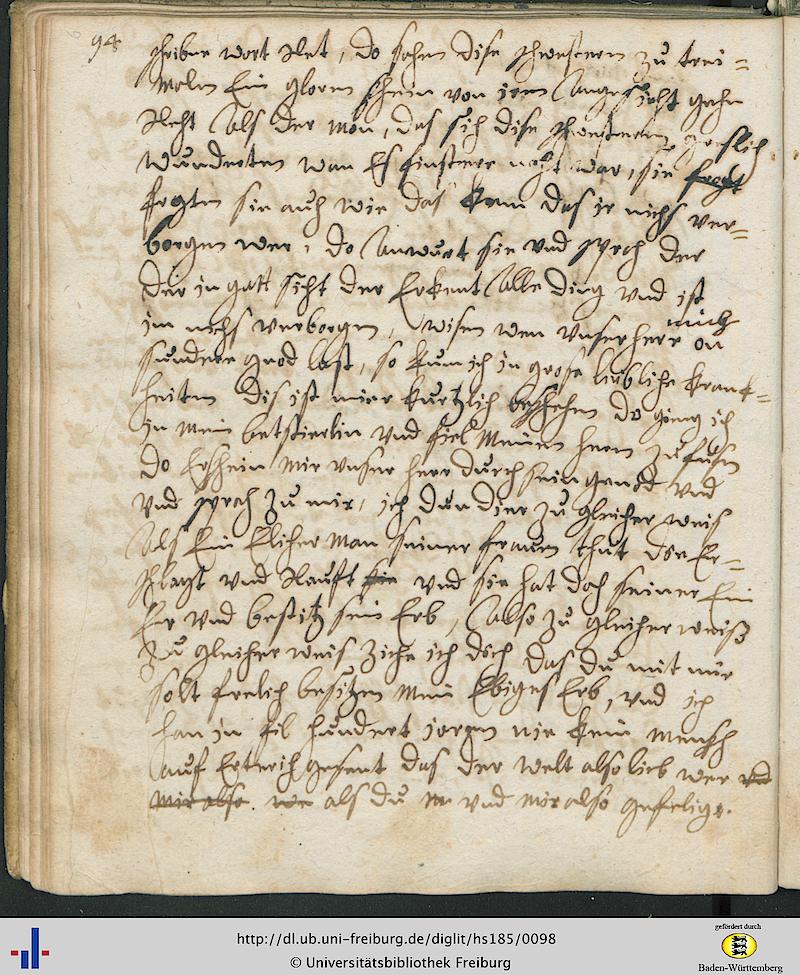 94
schriben wort Ret, do sahen dise schwestern zu trei=
molen Ein gloren schein von irem Angesicht gehn
Reht Als der mon, das sich dise schwesteren greslich
wunderten wan Es finster naht war, sie
fragten sie auch wie das kem das ir nichs ver=
borgen wer, do Anwurt sie vnd sprach der
Der in gott siht der Erkent Alle ding vnd ist
im nichs verborgen, wisen wen vnserherr mich on
sundere gnod lost, so kum ich in grose liebliche kranck=
heiten dis ist mier kurtzlich beschehen do gieng ich
in mein betstierlin vnd fiel meinem heren zu fusen
do Erschein mir vnser herr durch sein genod vnd
vnd sprach zu mir, ich dun dier zu gleicher weis
Als Ein Elicher man seiner frauen thut der Er=
schlagt vnd Rauft vnd sie hat doch seiner Ein
Er vnd besitz sein Erb, Also zu gleicher weiß
zu gleicher weis ziche ich dich das du mit mir
solt frelich besitzen mein Ebiges Erb, vnd ich
han in fil hundert joren nie kein mensch
auf Erterich gesent das der welt also lieb wer vnd
mir also. we als du vnd mir also gefelig.
http://dl.ub.uni-freiburg.de/diglit/hs185/0098
© Universitätsbibliothek Freiburg
gefördert durch
Baden-Württemberg